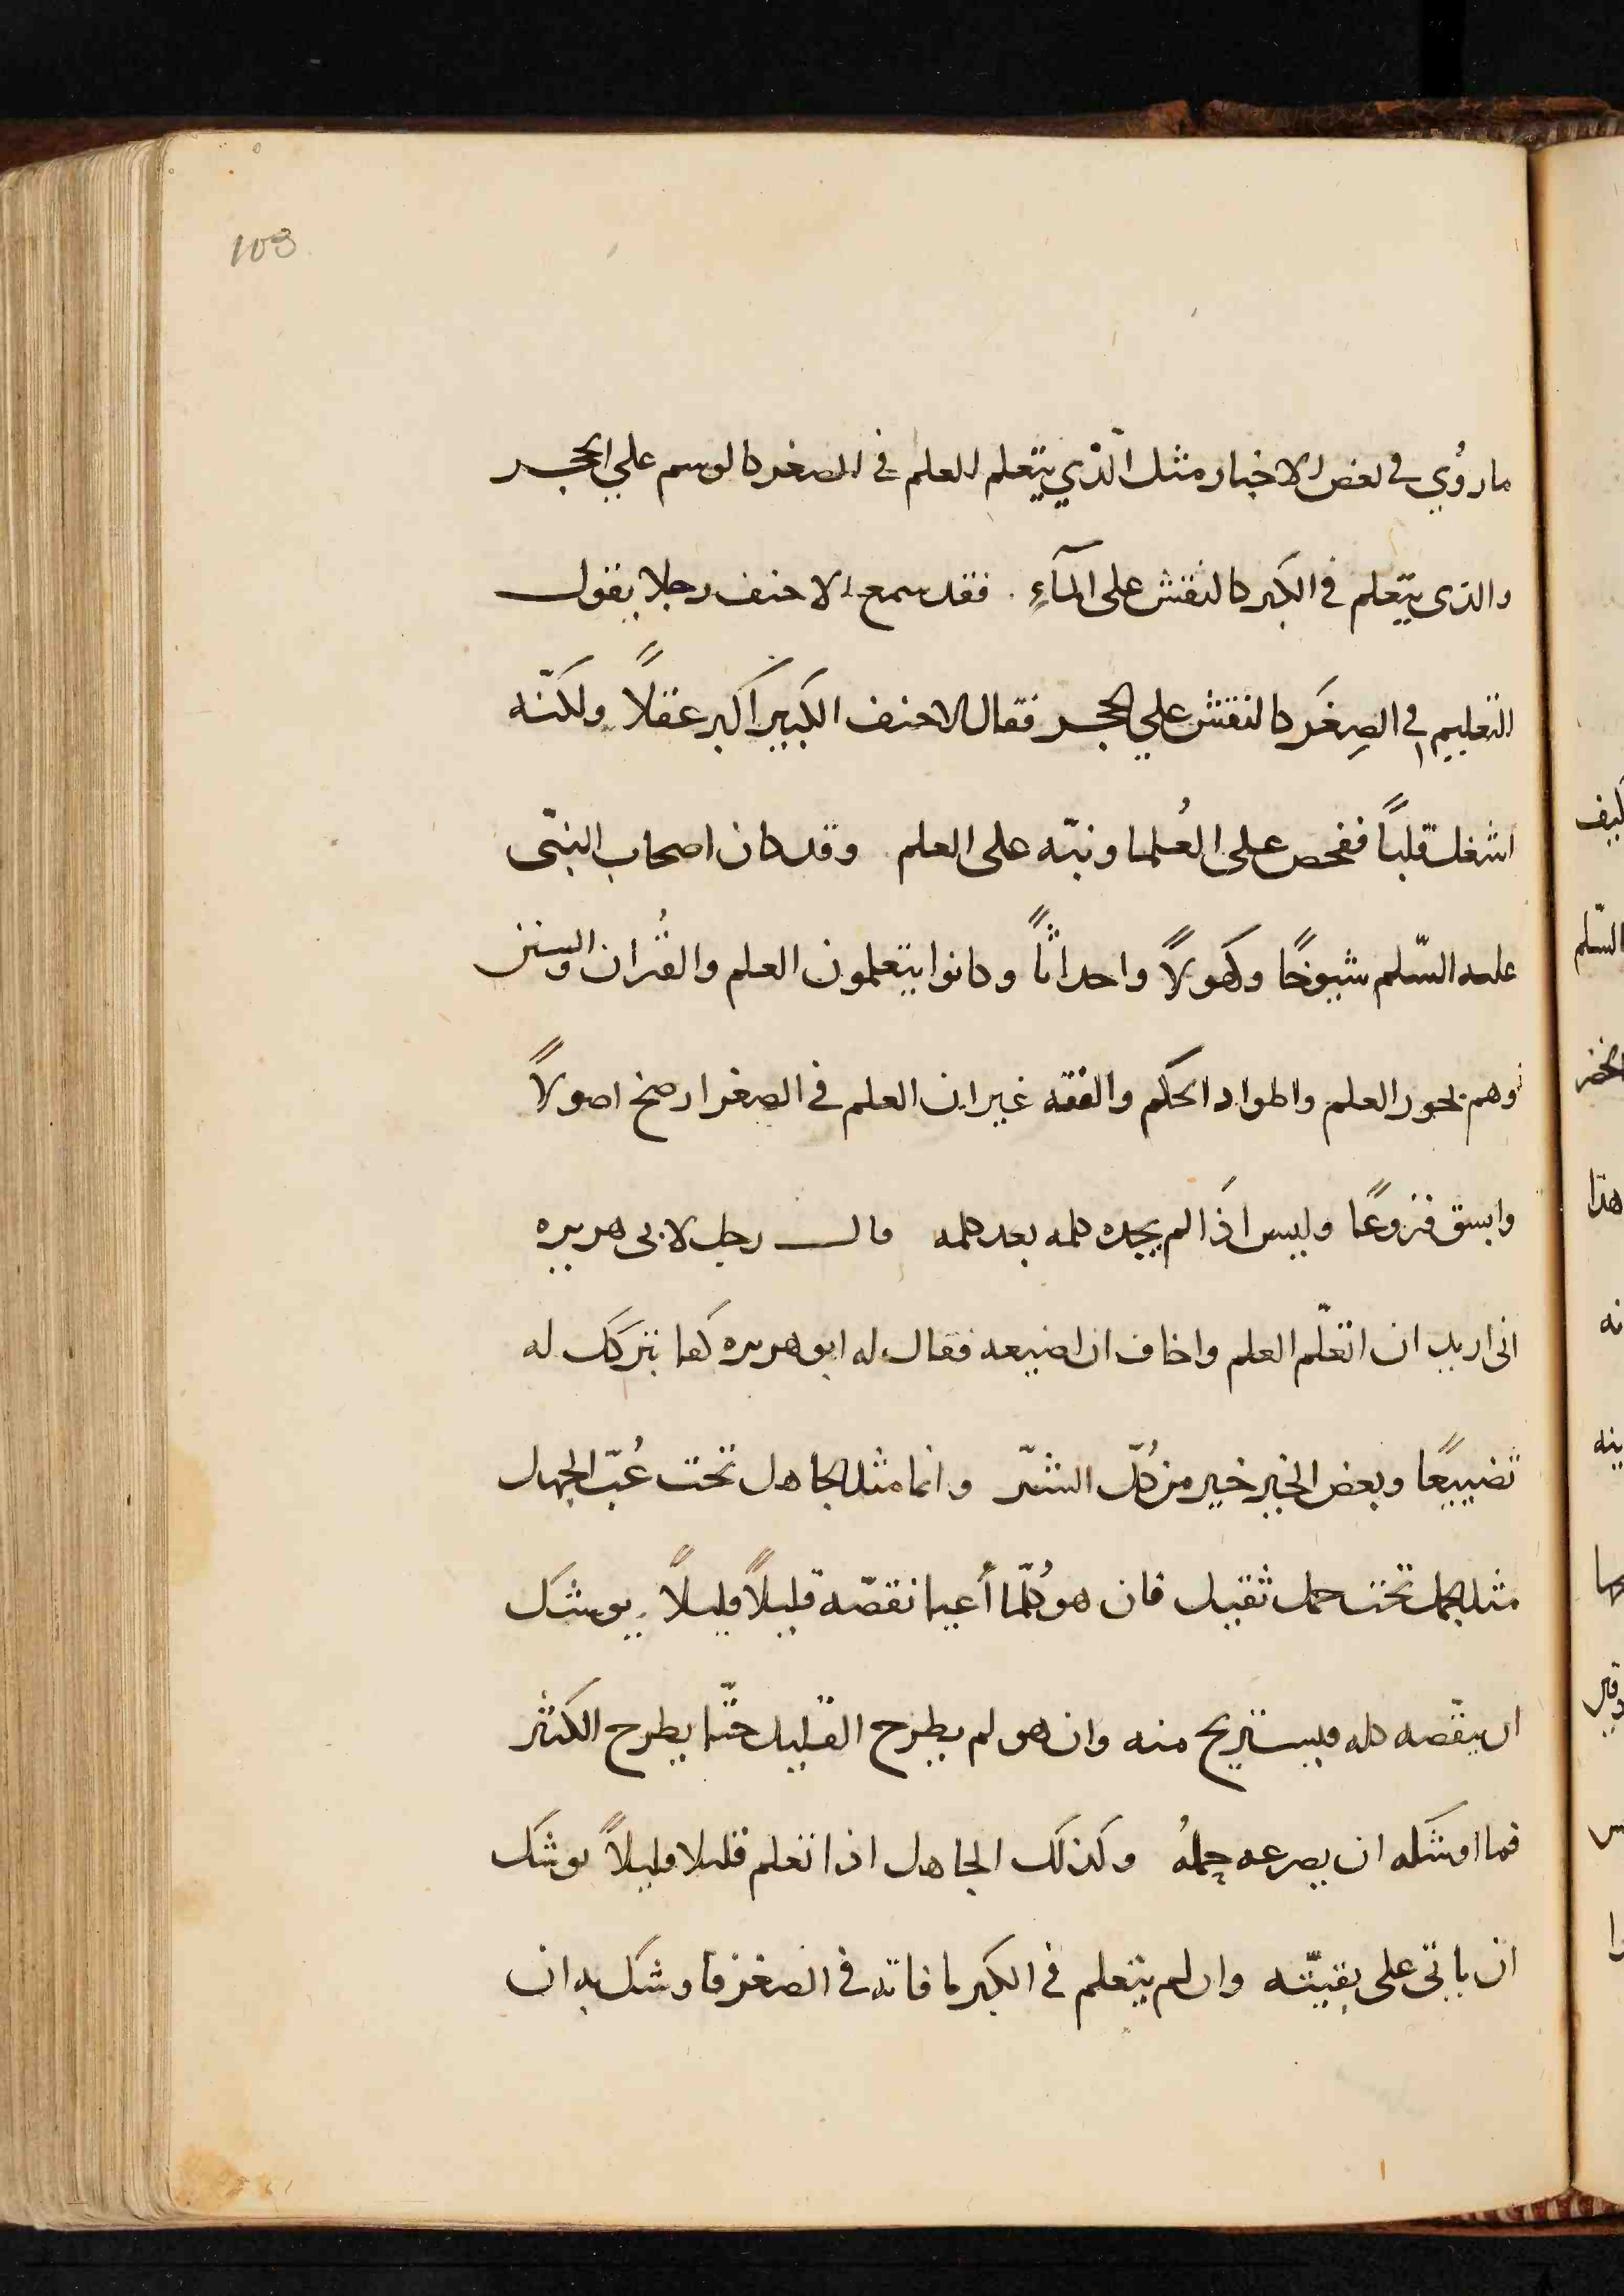 103
ما روُي في بعض الاخبار مثل الّذي يتعلم العلم في الصغر كالوسم علي الحجر
والذى يتعلم في الكبر كالنقش على المآءِ . فقد سمع الاحنف رجلا يقول
التعليم في الصِغَر كالنقش علي الحجر فقال الاحنف الكبير اكبر عقلاً ولكنّه
اشغل قلباً ففحص على العُلما ونبّه على العلم وقد كان اصحاب النبّى
عليه السّلم شيوخًا وكهولاً واحداثاً وكانوا يتعلمون العلم والقُران والسنن
وهم بحور العلم واطواد الحكم والفقه غير ان العلم في الصغر ارسخ اصولاً
وابسق فروعًا وليس اذا لم يجده كله بعد كله قال رجل لابى هريره
انى اريد ان اتعلّم العلم واخاف ان اضيعه فقال له ابو هريره كفا بتركك له
تضييعًا وبعض الخير خير من كُلّ الشّر وانما مثل الجاهل تحت عُبّ الجهل
مثل الجمل تحت حمل ثقيل فان هو كُلّما أعيا نقصّه قليلاً قليلاً يوشك
ان ينقصه كله فيستريح منه وان هو لم يطرح القليل حتّا يطرح الكثر
فما اوشكه ان يصرعه حِملُه وكذلك الجاهل اذا تعلم قليلا قليلاً يوشك
ان ياتى على بقيتّه وان لم يتعلم في الكبر ما فاته في الصغر فاوشك به ان
كيف
السّلم
الخضر
هذا
نه
ينه